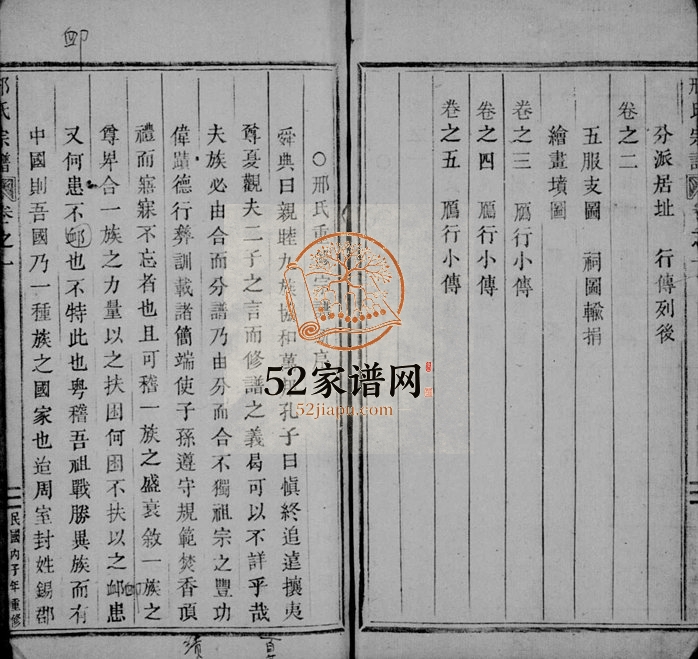 分派居址 行傳列後
卷之二
五服支圖 祠圖輸捐
繪畫墳圖
卷之三 鴈行小傳
卷之四 鴈行小傳
卷之五 鴈行小傳
○邢氏重
舜典曰親睦九族協和萬 孔子曰愼終追遠攘夷
尊夏觀夫二子之言而修譜之義曷可以不詳乎哉
夫族必由合而分譜乃由分而合不獨祖宗之豐功
偉蹟德行彝訓載諸簡端使子孫遵守規範焚香頂
禮而寤寐不忘者也且可稽一族之盛衰敘一族之
尊卑合一族之力量以之扶困何困不扶以之卹患
又何患不卹也不特此也粵稽吾祖戰勝異族而有
中國則吾國乃一種族之國家也迨周室封姓錫郡
邢氏宗譜 卷之一
民國丙子年重修
52家谱网
52jiapu.com